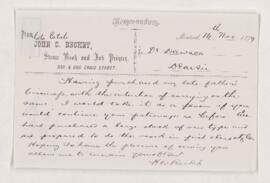 Memorandum.
From late Estab
JOHN C. BECKET,
Steam Book and Job Printer,
Montreal, 14th Nov 1879
To Dr Dawson
Dear Sir
Having purchased my late father's
business, with the intention of carrying on the
same, I would take it as a favor if you
would continue your patronage as before. We
have purchased a large stock of new type and
are prepared to do the work in first class style.
Hoping to have the pleasure of serving you
allow me to remain yours